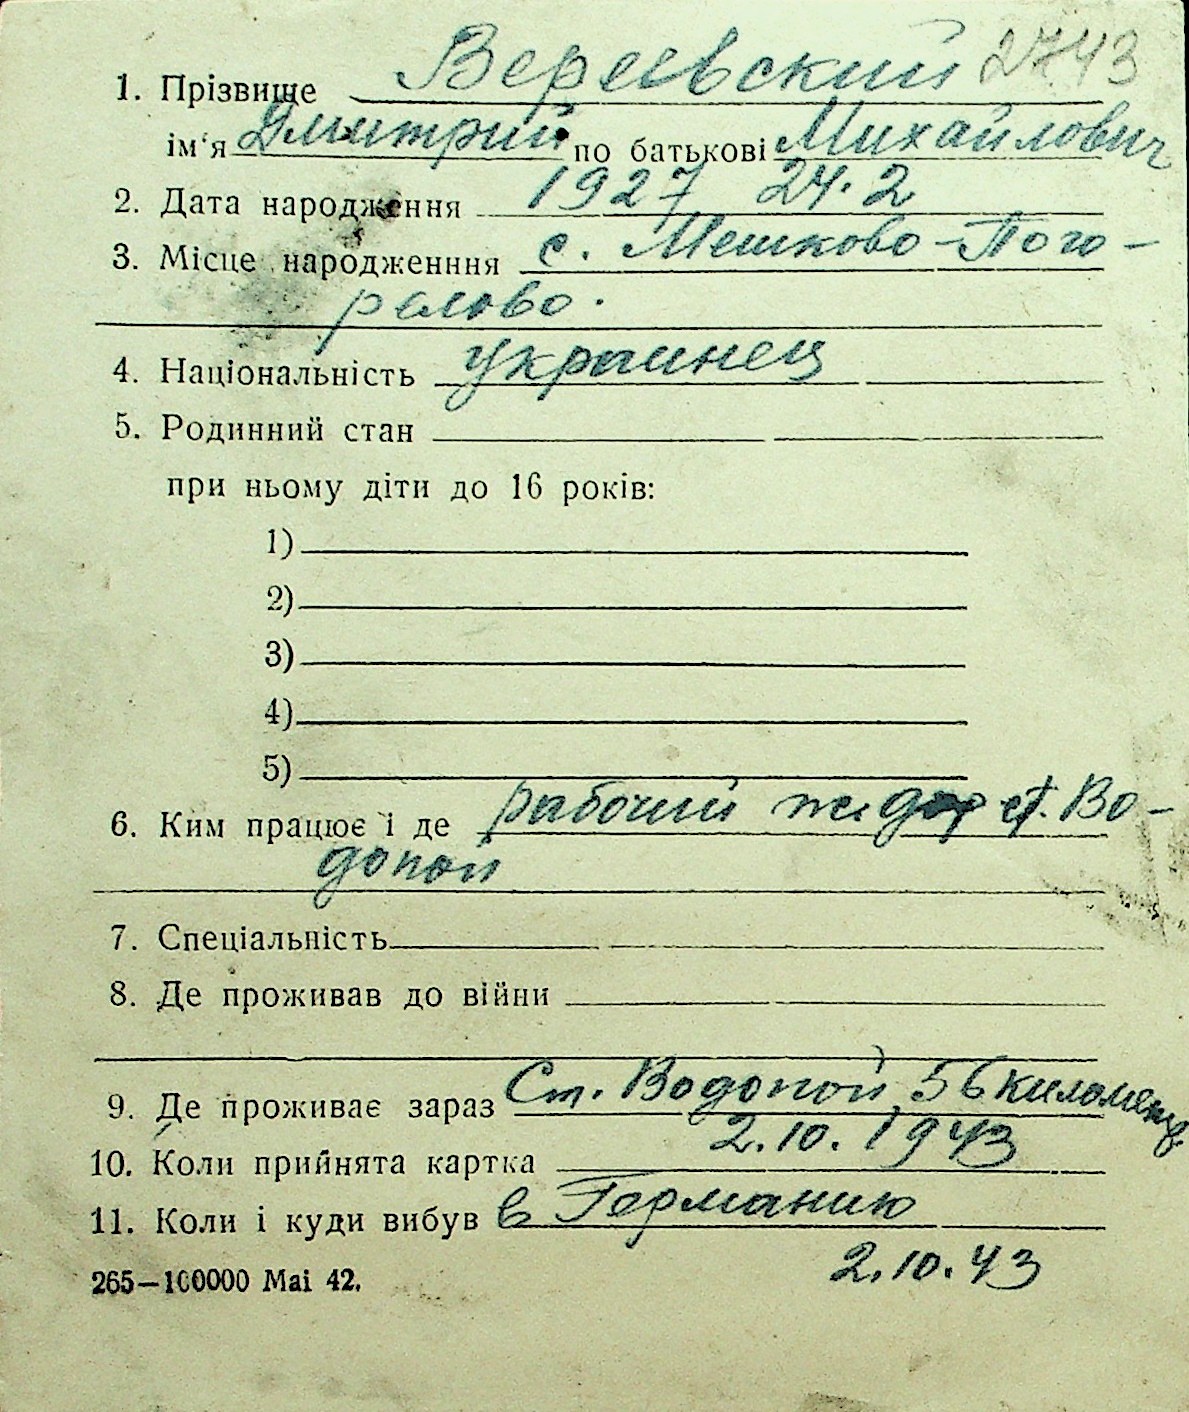 1. Прізвище Вереевский 2743
ім'я Дмитрий по батькові Михайлович
2. Дата народження 1927 24.2
3. Місце народженння с. Мешково-Пого-
релово.
4. Національність украинец
5. Родинний стан
при ньому діти до 16 років:
1)
2)
3)
4)
5)
6. Ким працює і де рабочий жел дор ст. Во-
допой
7. Спеціальність
8. Де проживав до війни
9. Де проживає зараз Ст. Водопой 56 километр
10. Коли прийнята картка 2.10.1943
11. Коли і куди вибув в Германию
265—100000 Маі 42. 2.10.43